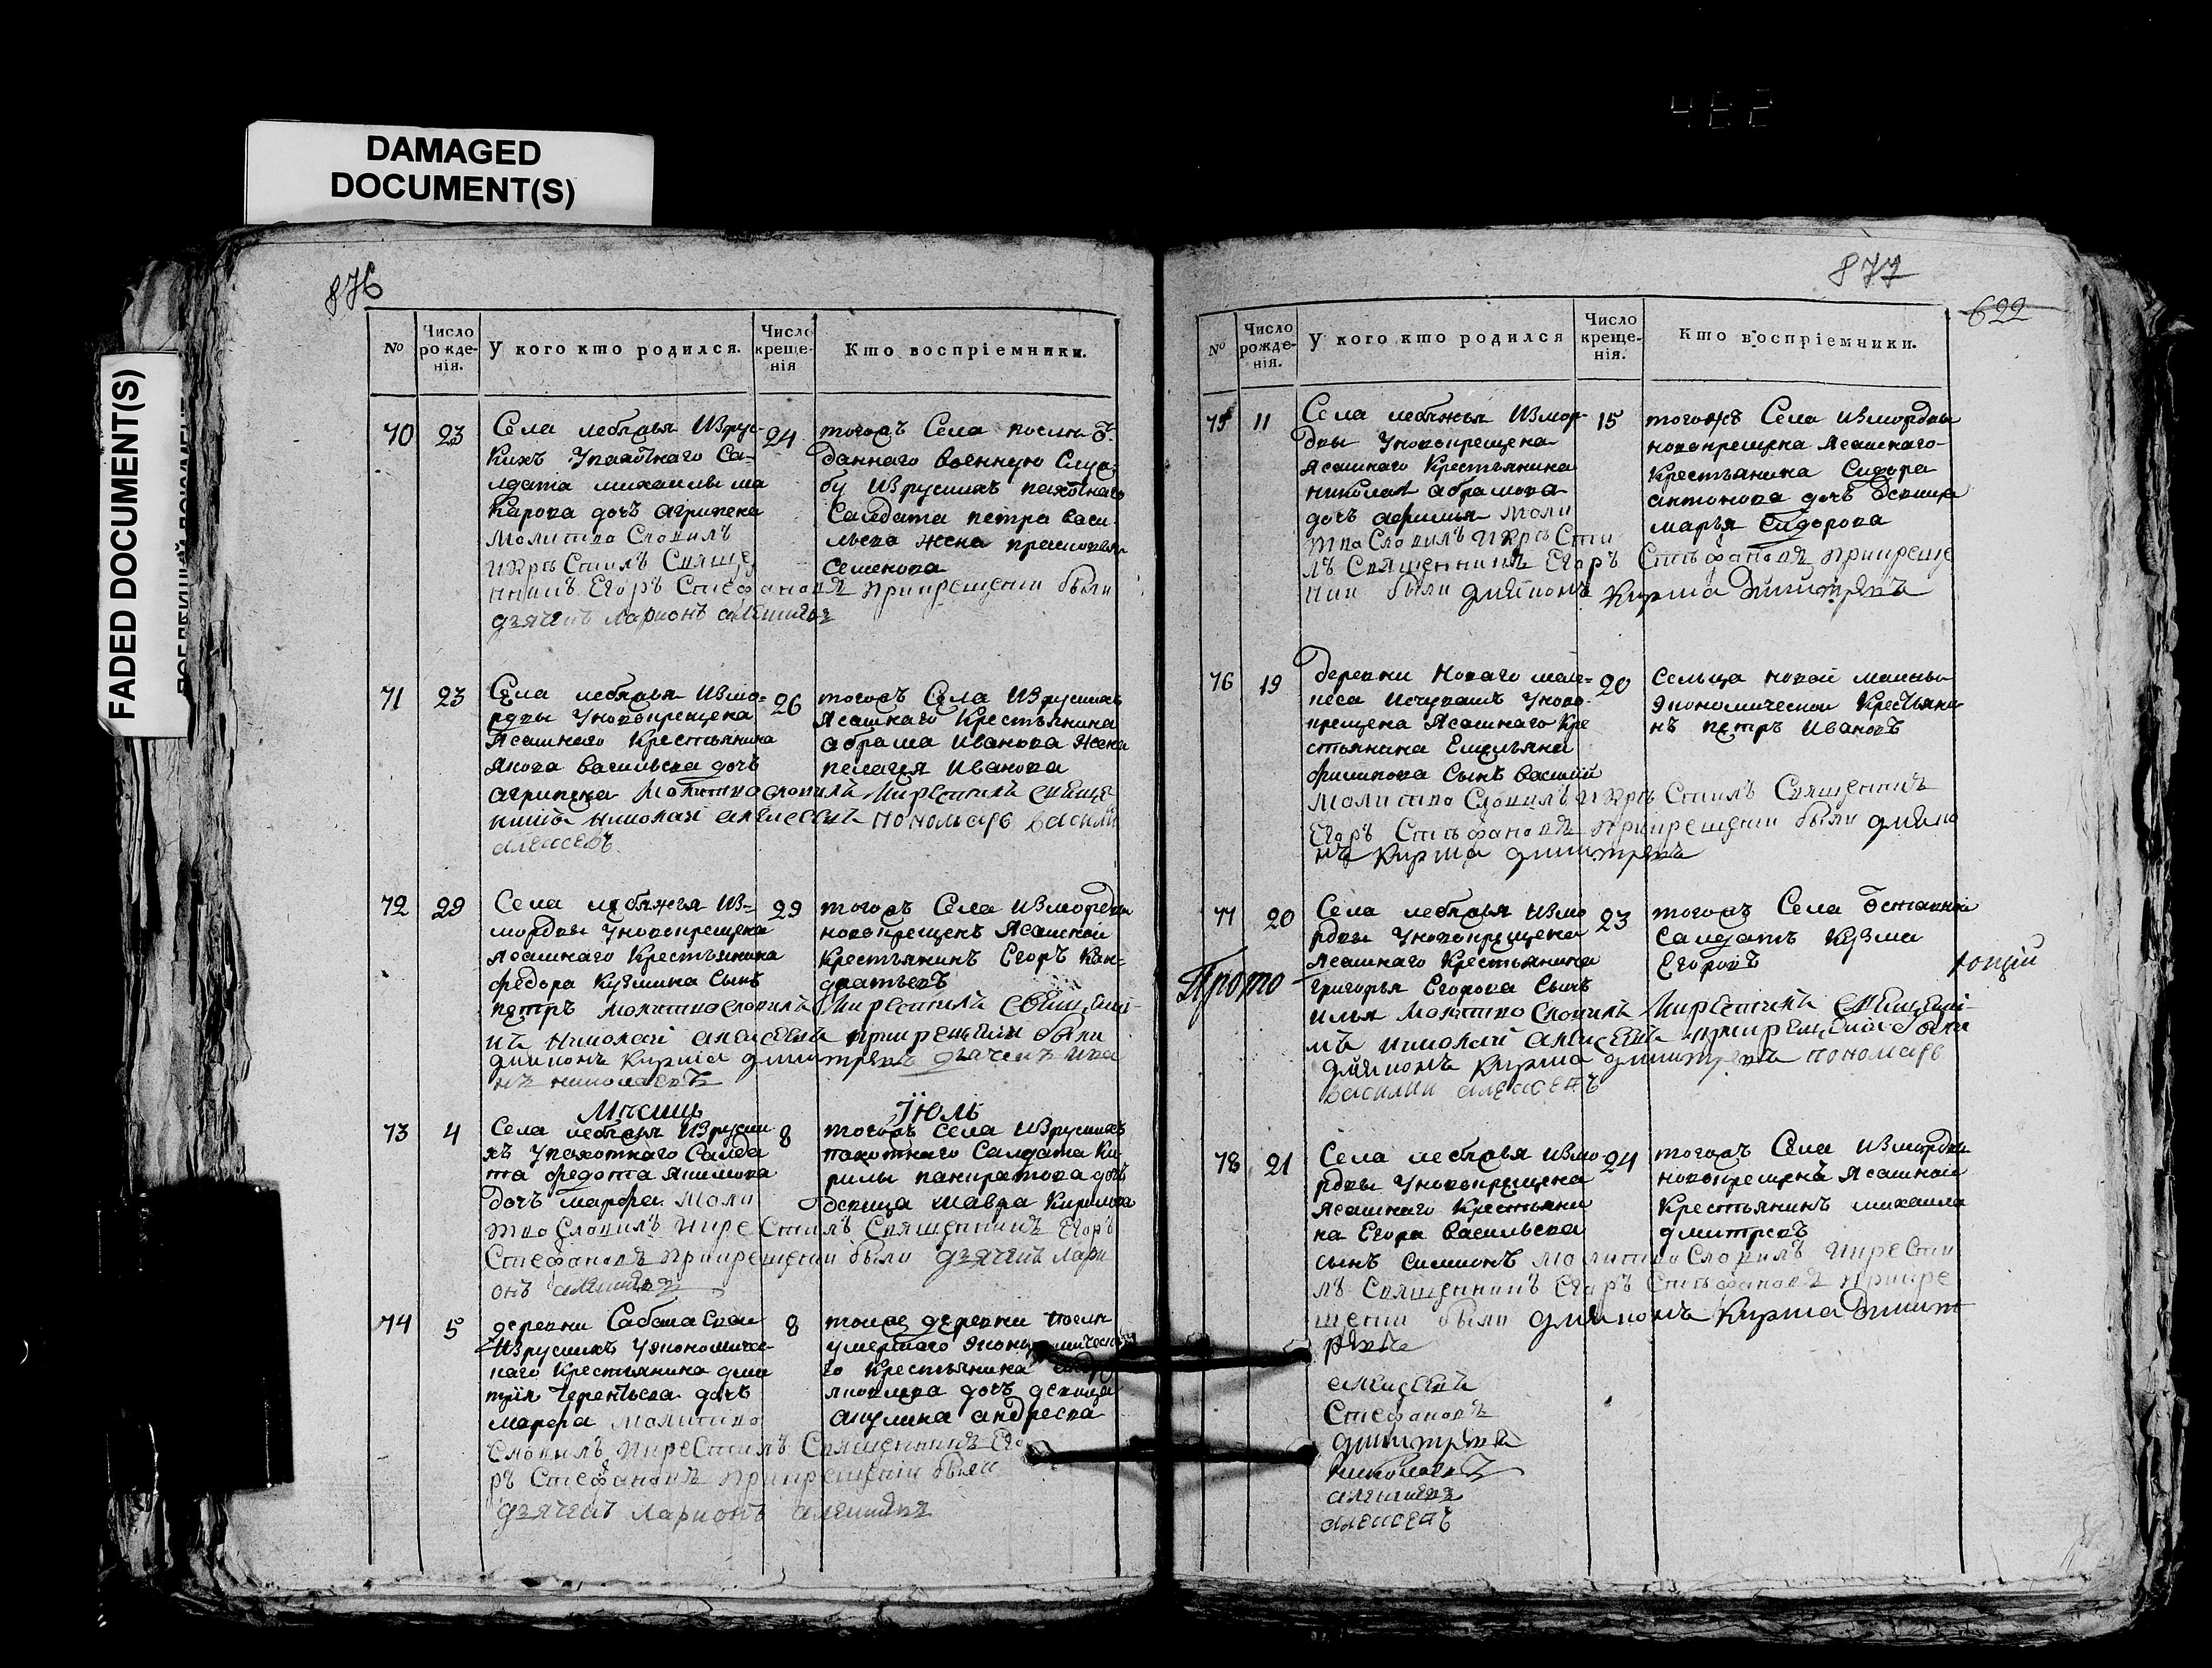 482
DAMAGED
DOCUMENT(S)
FADED DOCUMENT(S)
876
№
Число рожде-нія.
У кого кто родился.
Число креще-нія
Кто воспріемники.
70 23 24
Села лебяжья Изрус-
кихъ Упахотнаго Са-
лдата михаилы ма
карова дочъ агрипена
молитво Словилъ
икрѣ Стилъ Свяще
нникъ Егоръ Стефановъ прикрещении были
дзячекъ Ларионъ
тогожъ Села после ѿ
даннаго военную Служ
бу Изрускихъ пахотнаго
Салдата петра васи-
льева жена прасковья
Семенова
71 23 26
Села лебяжья Измо-
рдвы Уновокрещена
Ясашнаго Крестьянина
Якова васильева дочъ
агрипена молитвословилъ икрестилъ свяще
никъ николай алексеевъ пономарь васили
алексеевъ
тогожъ Села Изрускихъ
Ясашнаго Крестьянина
абрама Иванова Жена
пелагея Иванова
72 29 29
Села лебяжья Из-
мордвы Уновокрещена
Ясашнаго Крестьянина
федора Кузмина Сынъ
петръ молитвословилъ икрестилъ священи-
нъ николай алексеевъ прикрещении были
дмиконъ Кирила дмитревъ дьячекъ ива
нъ николаевъ
тогожъ Села Измордвы
новокрещенъ Ясашной
Крестьянинъ Егоръ Кан-
дратьевъ
Мѣсицъ Іюль
73 4 8
Села лебяжья Изруски
хъ Упахотнаго Салда
та федота Якимова
дочъ марфа. моли
тво Словилъ икре Стилъ Священникъ Егоръ
Стефановъ прикрещении были дзячекъ Лари
онъ
тогожъ села Изрускихъ
пахотнаго Салдата Ки
рилы панкратова дочъ
девица мавра Кирилова
74 5 8
деревни Сабакаевой
Изрускихъ Уэкономиче-
скаго Крестьянина дми
трия терентьева дочъ
марфа молитво
Словилъ икреСтилъ Священникъ Его
ръ Стефановъ прикрещении были
дзячекъ Ларионъ
тоеже деревни после
умершаго Экономическа
го Крестьянина
яковлева дочъ девица
акулина андреева
877
622
№
Число рожде-нія.
У кого кто родился
Число креще-нія.
Кто воспріемники.
75 11 15
Села лебяжья Измор-
двы Уновокрещена
Ясашнаго Крестьянина
николая абрамова
дочъ афимья моли
тво Словилъ икрѣ Сти
лъ Священникъ Егоръ Стефановъ прикреще
нии были дмиконъ Кирила дмитревъ
тогожъ Села Измордвы
новокрещена Ясашнаго
Крестьянина Сидора
антонова дочъ девица
марья Сидорова
76 19 20
деревни Новаго
Исчувашъ Уново-
крещена Ясашнаго Кре
стьянина Емельяна
филипова Сынъ василий
молитво Словилъ икрѣ Стилъ Священникъ
Егоръ Стефановъ прикрещении были дмико
нъ Кирила дмитревъ
Сельца новой маины
Экономической Крестьяни
нъ петръ Ивановъ
77 20 23
Села лебяжья Измо
рдвы Уновокрещена
Ясашнаго Крестьянина
григорья Егорова Сынъ
илья молитвословилъ икрестилъ священи-
къ николай алексеевъ прикрещении были
дмиконъ Кирила дмитревъ пономарь
василии алексеевъ
тогожъ Села ѿставной
Салдатъ Кузма
Егоровъ
Прото
78 21 24
Села лебяжья Измо
рдвы Уновокрещена
Ясашнаго Крестьяни
на Егора васильева
сынъ симионъ молитво Словилъ икреСти
лъ Священникъ Егоръ Стефановъ прикре
щении были дмиконъ Кирила дмит
ревъ
тогожъ Села Измордвы
новокрещенъ Ясашной
Крестьянинъ михаила
дмитревъ
алексеевъ
Стефановъ
дмитревъ
николаевъ
алексеевъ